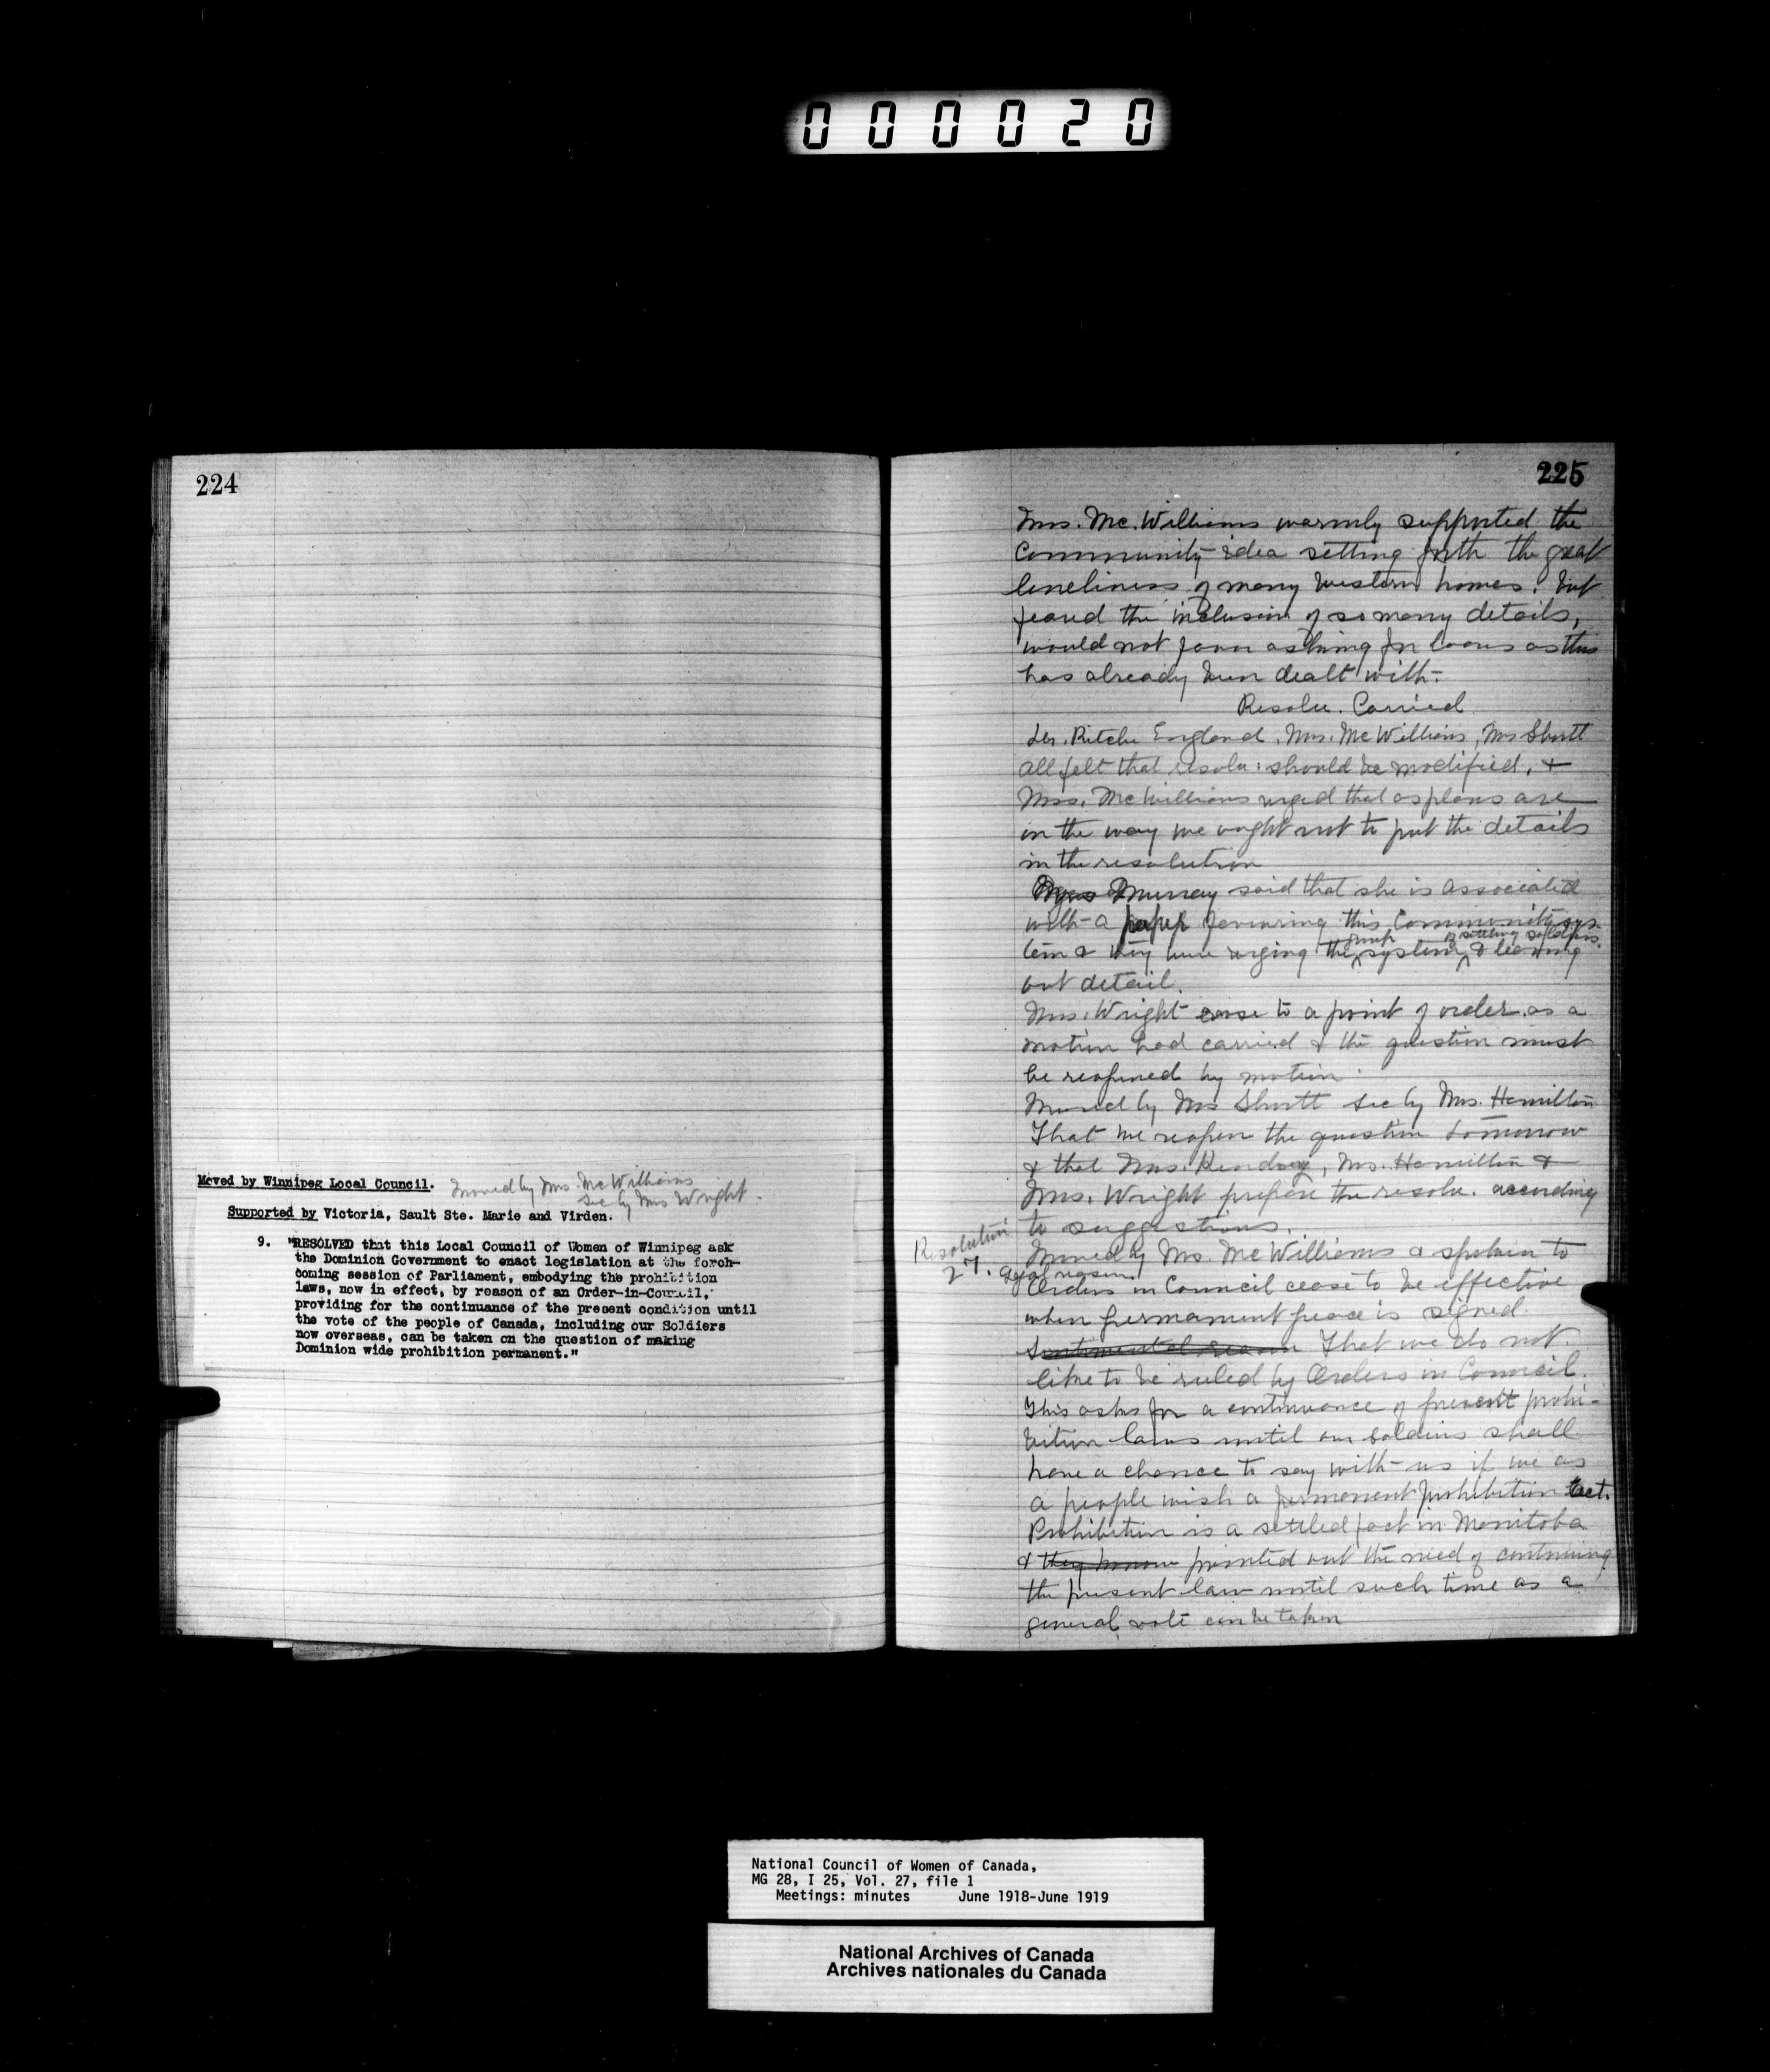 000020
224
Moved by Winnipeg Local Council. Moved by Mrs. McWilliams
Sec by Mrs Wright.
Supported by Victoria, Sault Ste. Marie and Virden.
9. "RESOLVED that this Local Council of Women of Winnipeg ask
the Dominion Government to enact legislation at the forth-
coming session of Parliament, embodying the prohibition
laws, now in effect, by reason of an Order-in-Council,
providing for the continuance of the present condition until
the vote of the people of Canada, including our Soldiers
now overseas, can be taken on the question of making
Dominion wide prohibition permanent."
225
Mrs. Mc.Williams warmly supported the
Community idea setting forth the great
loneliness of many western homes. but
feared the inclusion of so many details,
would not favor asking for loans as this
has already been dealt with.
Resolu. Carried
Dr. Ritchie England, Mrs. McWilliams, Mrs Shortt
all felt that resolu: should be modified, &
Mrs. McWilliams urged that as plans are
in the way we ought not to put the details
in the resolution
Murray said that she is associated
with a paper favouring this Community sys-
tem & they were urging the group system of settling soldiers & leaving
out detail.
Mrs. Wright rose to a point of order as a
motion had carried & the question must
be reopened by motion.
Moved by Mrs Shortt sec by Mrs. Hamilton
That we reopen the question tomorrow
& that Mrs. , Mrs. Hamilton &
Mrs. Wright prepare the resolu. according
to suggestions.
Resolution
27.
Moved by Mrs. McWilliams & spoken to
Legal reason.
Orders in Council cease to be effective
when permament peace is signed.
Sentimental reason That we do not
like to be ruled by Orders in Council.
This asks for a continuance of present prohi-
bition laws until our soldiers shall
have a chance to say with us if we as
a people wish a permanent prohibition act.
Prohibition is a settled fact in Manitoba
& they know pointed out the need of continuing
the present law until such time as a
general vote can be taken
National Council of Women of Canada,
MG 28, I 25, Vol. 27, file 1
Meetings: minutes June 1918-June 1919
National Archives of Canada
Archives nationales du Canada